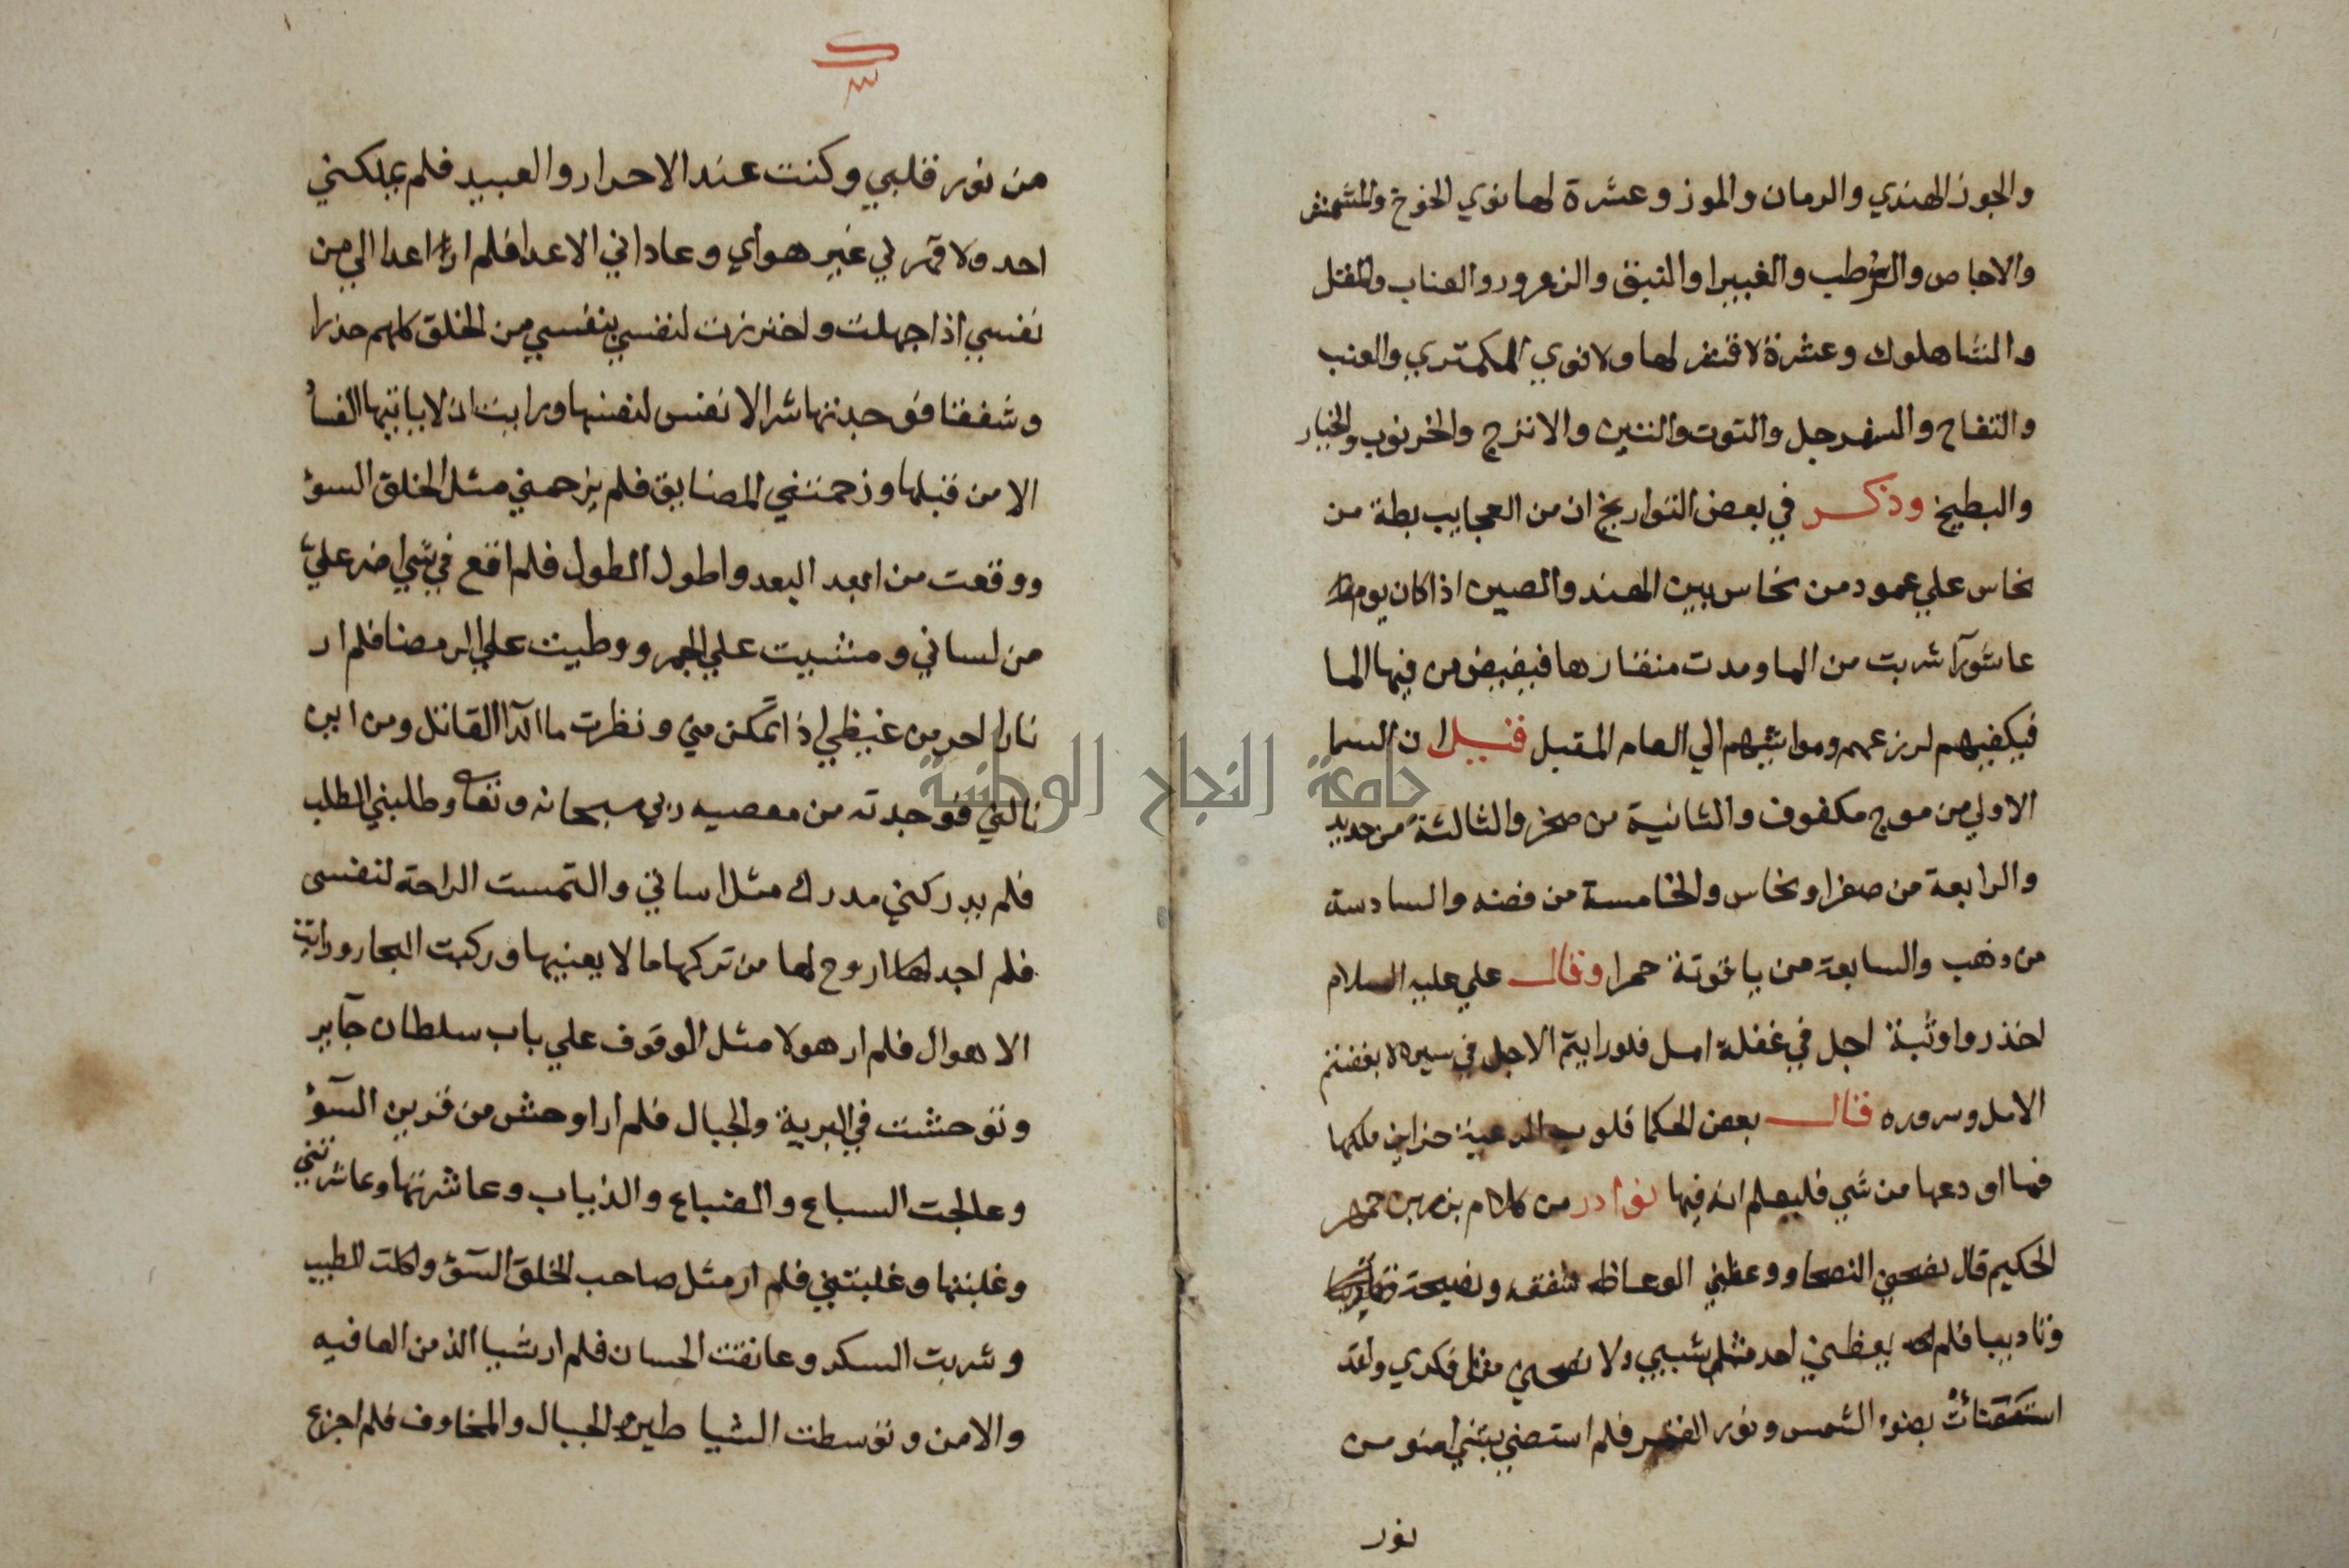 والجوز الهندي والرمان والموز وعشرة لها نوي الخوخ والمشمش
والاجاص والرطب والغبيرا والنبق والزعرور والعناب والمقل
والشاهلوك وعشرة لا قشر لها ولا نوي الكمتري والعنب
والتفاح والسفرجل والتوت والتين والاترج والخرنوب والخيار
والبطيخ وذكر في بعض التواريخ ان من العجايب بطة من
نحاس علي عمود من نحاس بين الهند والصين اذا كان يوم
عاشورآ شربت من الما ومدت منقارها فيفيض من فيها الما
فيكفيهم لزرعهم ومواشيهم الي العام المقبل قيل ان السما
الاولي من موج مكفوف والثانية من صخر والثالثة من حديد
والرابعة من صفر او نحاس والخامسة من فضه والسادسة
من ذهب والسابعة من ياقوتة حمرا وقال علي عليه السلام
احذروا وثبة اجل في غفلة امل فلو رايتم الاجل في سيره لابغضتم
الامل وسروره قال بعض الحكما قلوب الرعية خزاين ملكها
فما اودعها من شي فليعلم انه فيها نوادر من كلام بزرجمهر
الحكيم قال نصحني النصحا ووعظني الوعاظ شفقه ونصيحة
وتاديبا فلم يعظني احد مثل شيبي ولا نصحني مثل فكري ولقد
استضات بضوء الشمس ونور القمر فلم استضي بشي اضو من
نور
من نور قلبي وكنت عند الاحرار والعبيد فلم يملكني
احد ولا قهرني غير هواي وعاداني الاعدا فلم ار اعدا الي من
نفسي اذا جهلت واحترزت لنفسي بنفسي من الخلق كلهم حذرا
وشفقا فوجدتها شر الانفس لنفسها ورايت ان لا ياتيها الفسا
الا من قبلها وزحمتني المضايق فلم يزحمني مثل الخلق السوء
ووقعت من ابعد البعد واطول الطول فلم اقع في شي اضر علي
من لساني ومشيت علي الجمر ووطيت علي الرمضا فلم ار
نارا احر من غيظي اذا تمكن مني ونظرت ما الدا القاتل ومن اين
نالني فوجدته من معصيه ربي سبحانه وتعا وطلبني الطلب
فلم يدركني مدرك مثل اساني والتمست الراحة لنفسي
فلم اجد لها اروح لها من تركها ما لا يعنيها وركبت البحار ورايت
الاهوال فلم ار هولا مثل الوقوف علي باب سلطان جآير
وتوحشت في البرية والجبال فلم ار اوحش من قرين السوء
وعالجت السباع والضباع والذياب وعاشرتها وعاشرتني
وغلبتها وغلبتني فلم ار مثل صاحب الخلق السوء واكلت الطيب
وشربت السكر وعانقت الحسان فلم ار شيا الذ من العافيه
والامن وتوسطت الشياطين الجبال والمخاوف فلم اجزع
جامعة النجاح الوطنية